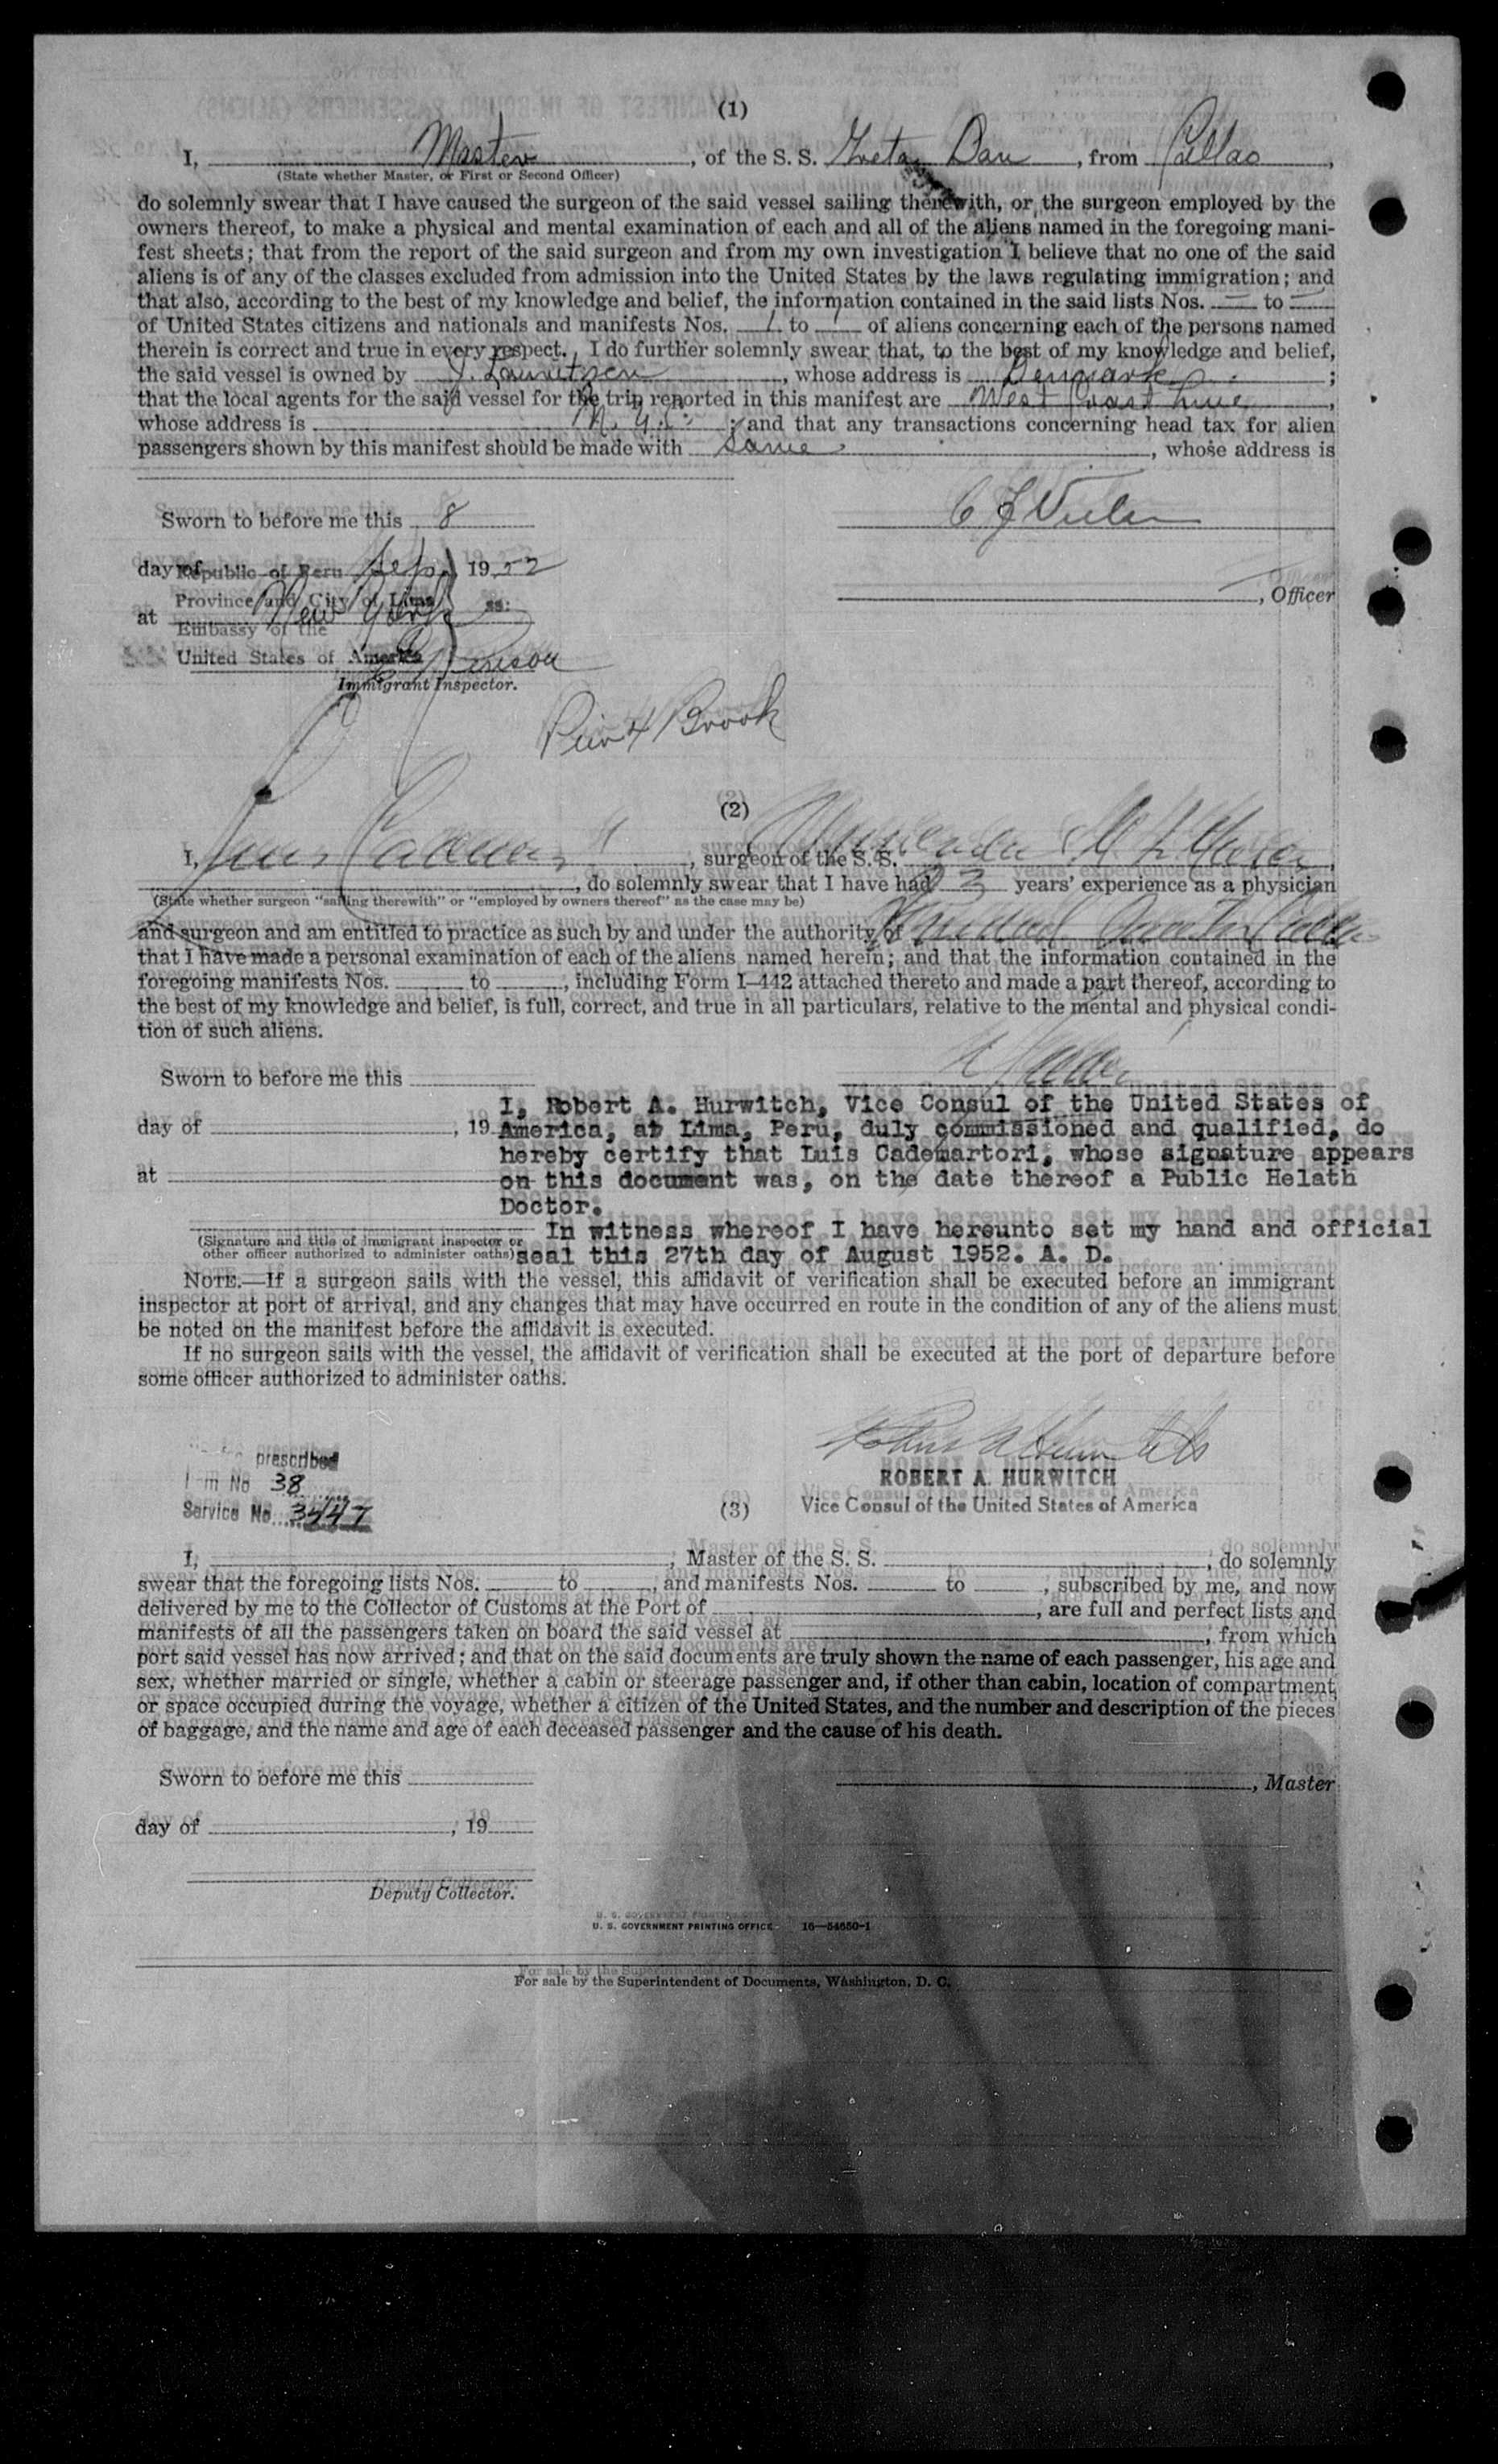 (1)
I, Master, of the S. S. Greta Dan, from Callao,
(State whether Master, or First or Second Officer)
do solemnly swear that I have caused the surgeon of the said vessel sailing therewith, or the surgeon employed by the
owners thereof, to make a physical and mental examination of each and all of the aliens named in the foregoing mani-
fest sheets; that from the report of the said surgeon and from my own investigation I believe that no one of the said
aliens is of any of the classes excluded from admission into the United States by the laws regulating immigration; and
that also, according to the best of my knowledge and belief, the information contained in the said lists Nos. — to —
of United States citizens and nationals and manifests Nos. 1 to 1 of aliens concerning each of the persons named
therein is correct and true in every respect. I do further solemnly swear that, to the best of my knowledge and belief,
the said vessel is owned by J. Lauritzen, whose address is Denmark;
that the local agents for the said vessel for the trip reported in this manifest are West Coast Line,
whose address is N.Y.C.; and that any transactions concerning head tax for alien
passengers shown by this manifest should be made with same, whose address is
Sworn to before me this 8
day of Sep, 1952
Republic of Peru
Province and City of Lima ss:
at New York
Embassy of the
United States of America
, Officer
Immigrant Inspector.
Pier 4 Brook
(2)
I, Luis, surgeon of the S. S.
, do solemnly swear that I have had 23 years' experience as a physician
(State whether surgeon "sailing therewith" or "employed by owners thereof" as the case may be)
and surgeon and am entitled to practice as such by and under the authority of
that I have made a personal examination of each of the aliens named herein; and that the information contained in the
foregoing manifests Nos. to , including Form I-442 attached thereto and made a part thereof, according to
the best of my knowledge and belief, is full, correct, and true in all particulars, relative to the mental and physical condi-
tion of such aliens.
Sworn to before me this
day of , 19
at
I, Robert A. Hurwitch, Vice Consul of the United States of
America, at Lima, Peru, duly commissioned and qualified, do
hereby certify that Luis Cademartori, whose signature appears
on this document was, on the date thereof a Public Helath
Doctor.
In witness whereof I have hereunto set my hand and official
seal this 27th day of August 1952. A. D.
(Signature and title of immigrant inspector or
other officer authorized to administer oaths)
NOTE.—If a surgeon sails with the vessel, this affidavit of verification shall be executed before an immigrant
inspector at port of arrival, and any changes that may have occurred en route in the condition of any of the aliens must
be noted on the manifest before the affidavit is executed.
If no surgeon sails with the vessel, the affidavit of verification shall be executed at the port of departure before
some officer authorized to administer oaths.
prescribed
No 38
Service No. 3447
ROBERT A. HURWITCH
Vice Consul of the United States of America
(3)
I, , Master of the S. S. , do solemnly
swear that the foregoing lists Nos. to , and manifests Nos. to , subscribed by me, and now
delivered by me to the Collector of Customs at the Port of , are full and perfect lists and
manifests of all the passengers taken on board the said vessel at , from which
port said vessel has now arrived; and that on the said documents are truly shown the name of each passenger, his age and
sex, whether married or single, whether a cabin or steerage passenger and, if other than cabin, location of compartment
or space occupied during the voyage, whether a citizen of the United States, and the number and description of the pieces
of baggage, and the name and age of each deceased passenger and the cause of his death.
Sworn to before me this
, Master
day of , 19
Deputy Collector.
U. S. GOVERNMENT PRINTING OFFICE 16—54650-1
For sale by the Superintendent of Documents, Washington, D. C.